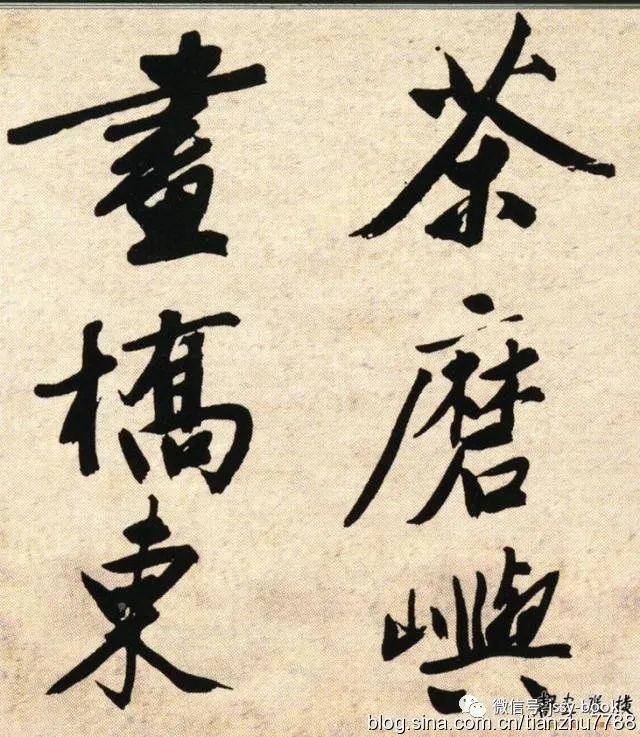 茶磨嶼
畫橋東
微信号: jssy-book
blog.sina.com.cn/tianzhu7788